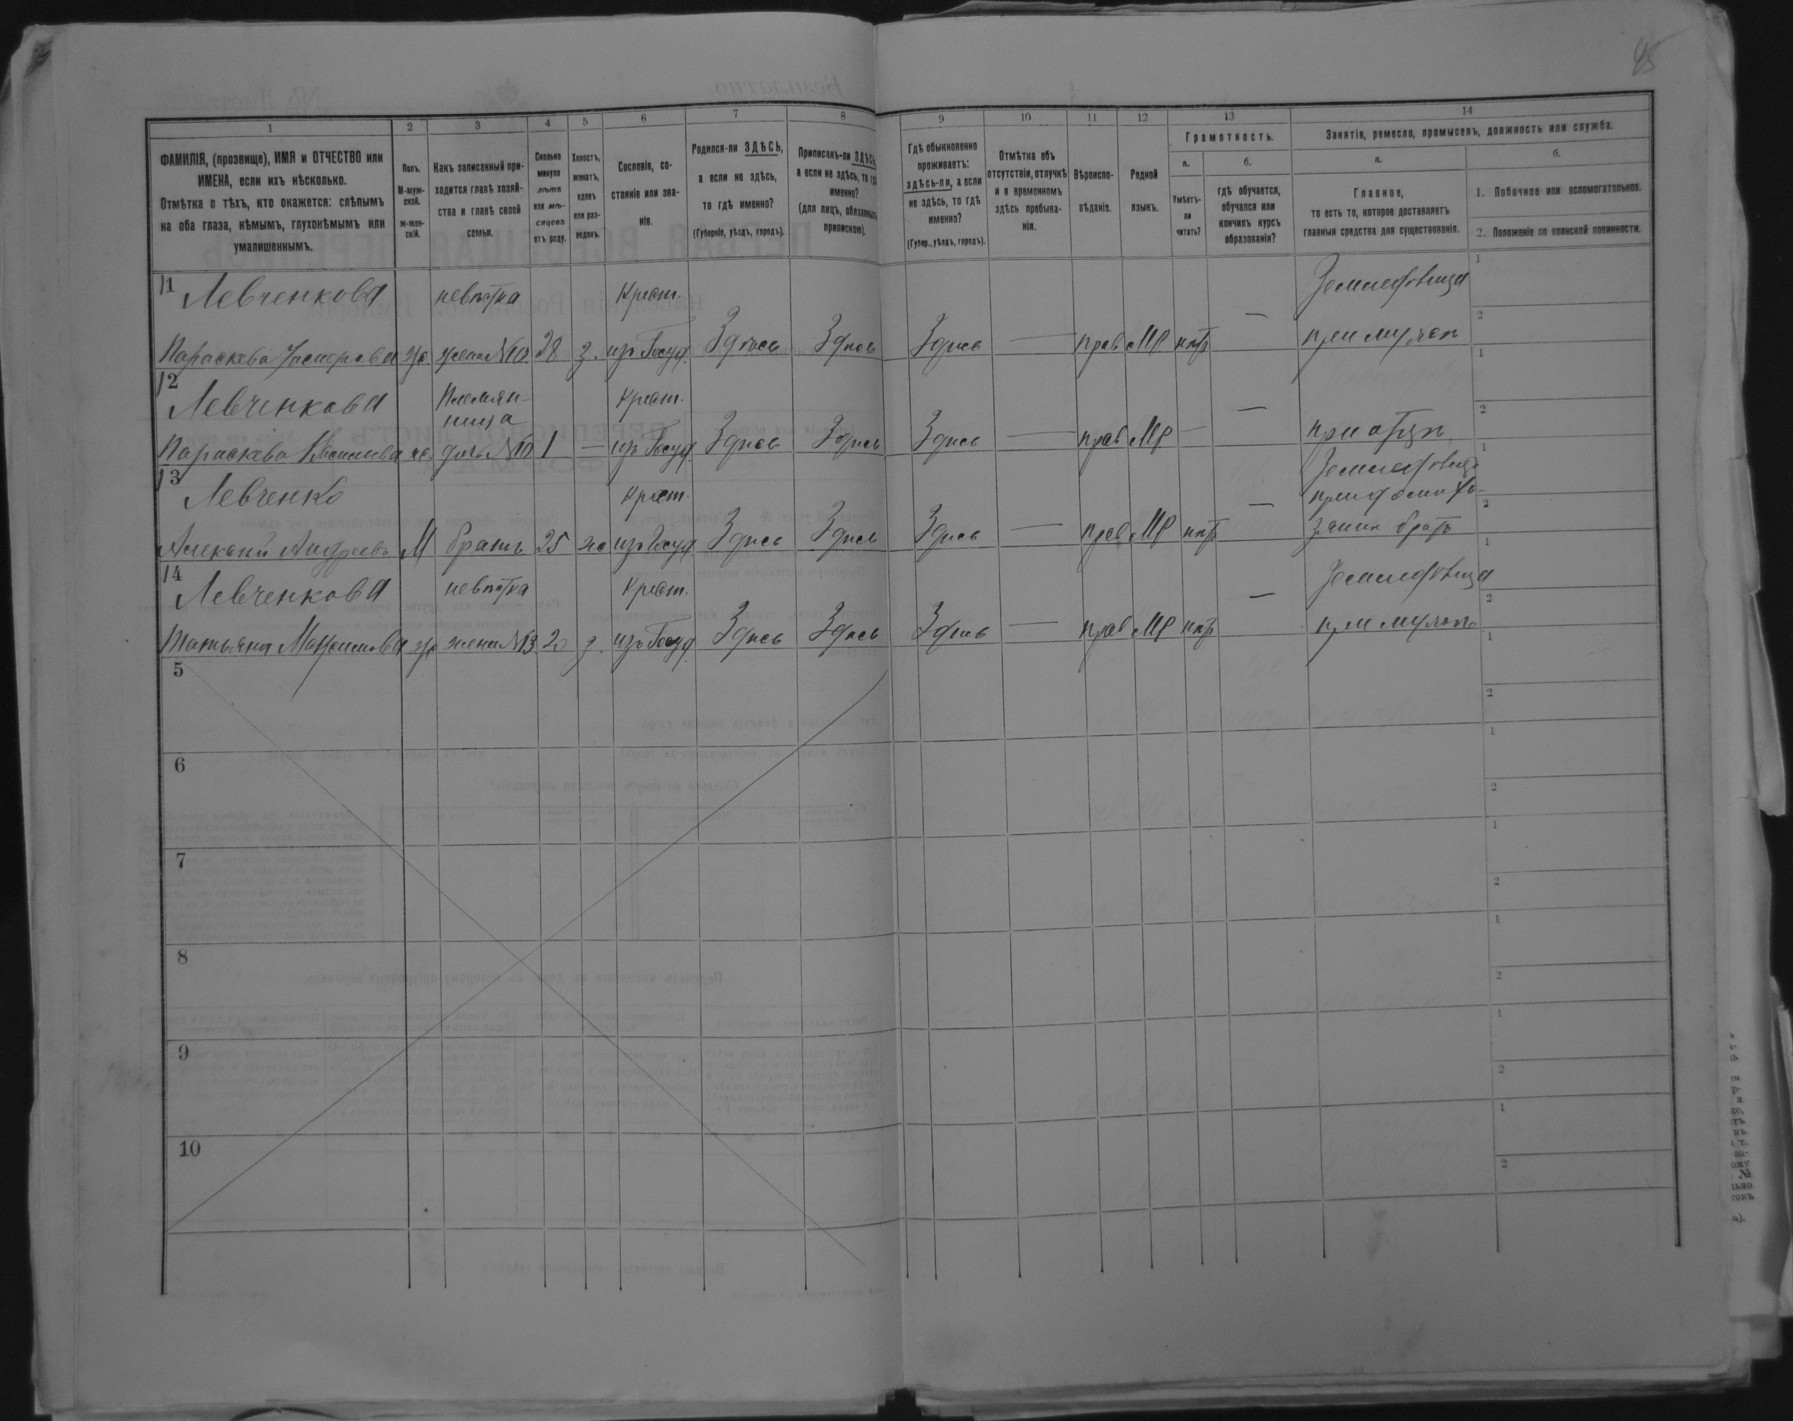 85
1 2 3 4 5 6 7 8 9 10 11 12 13 14
ФАМИЛІЯ, (прозвище), ИМЯ и ОТЧЕСТВО или
ИМЕНА, если ихъ нѣсколько.
Отмѣтка о тѣхъ, кто окажется: слѣпымъ
на оба глаза, нѣмымъ, глухонѣмымъ или
умалишеннымъ.
Полъ.
М-муж-
ской.
Ж-жен-
скій.
Какъ записанный при-
ходится главѣ хозяй-
ства и главѣ своей
семьи.
Сколько
минуло
лѣтъ
или мѣ-
сяцевъ
отъ роду.
Холостъ,
женатъ,
вдовъ
или раз-
веденъ.
Сословіе, со-
стояніе или зва-
ніе.
Родился-ли ЗДѢСЬ,
а если не здѣсь,
то гдѣ именно?
(Губернія, уѣздъ, городъ).
Приписанъ-ли ЗДѢСЬ,
а если не здѣсь, то гдѣ
именно?
(для лицъ, обязанныхъ
припиской).
Гдѣ обыкновенно
проживаетъ:
здѣсь-ли, а если
не здѣсь, то гдѣ
именно?
(Губер., уѣздъ, городъ).
Отмѣтка объ
отсутствіи, отлучкѣ
и о временномъ
здѣсь пребыва-
ніи.
Вѣроиспо-
вѣданіе.
Родной
языкъ.
Грамотность.
а.
Умѣетъ-
ли
читать?
б.
гдѣ обучается,
обучался или
кончилъ курсъ
образованія?
Занятіе, ремесло, промыселъ, должность или служба.
а.
Главное,
то есть то, которое доставляетъ
главныя средства для существованія.
б.
1. Побочное или вспомогательное.
2. Положеніе по воинской повинности.
11 Левченкова невѣстка Крест. — Земледѣлица 1
2
Параскева ж. жена №10 28 з. изъ Госуд. Здѣсь Здѣсь Здѣсь — прав МР нѣтъ при мужѣ
12 Левченкова Племян- Крест. — 1
ница 2
Параскева ж. дочь №10 1 — изъ Госуд. Здѣсь Здѣсь Здѣсь — прав МР — при отцѣ
13 Левченко Крест. — Земледѣлецъ 1
при домохо- 2
Алексѣй Андреевъ М братъ 25 ж изъ Госуд. Здѣсь Здѣсь Здѣсь — прав МР нѣтъ зяинѣ братѣ
14 Левченкова невѣстка Крест. — Земледѣлица 1
2
Татьяна Максимова ж жена №13 20 з. изъ Госуд. Здѣсь Здѣсь Здѣсь — прав МР нѣтъ при мужѣ
5 1
2
6 1
2
7 1
2
8 1
2
9 1
2
10 1
2